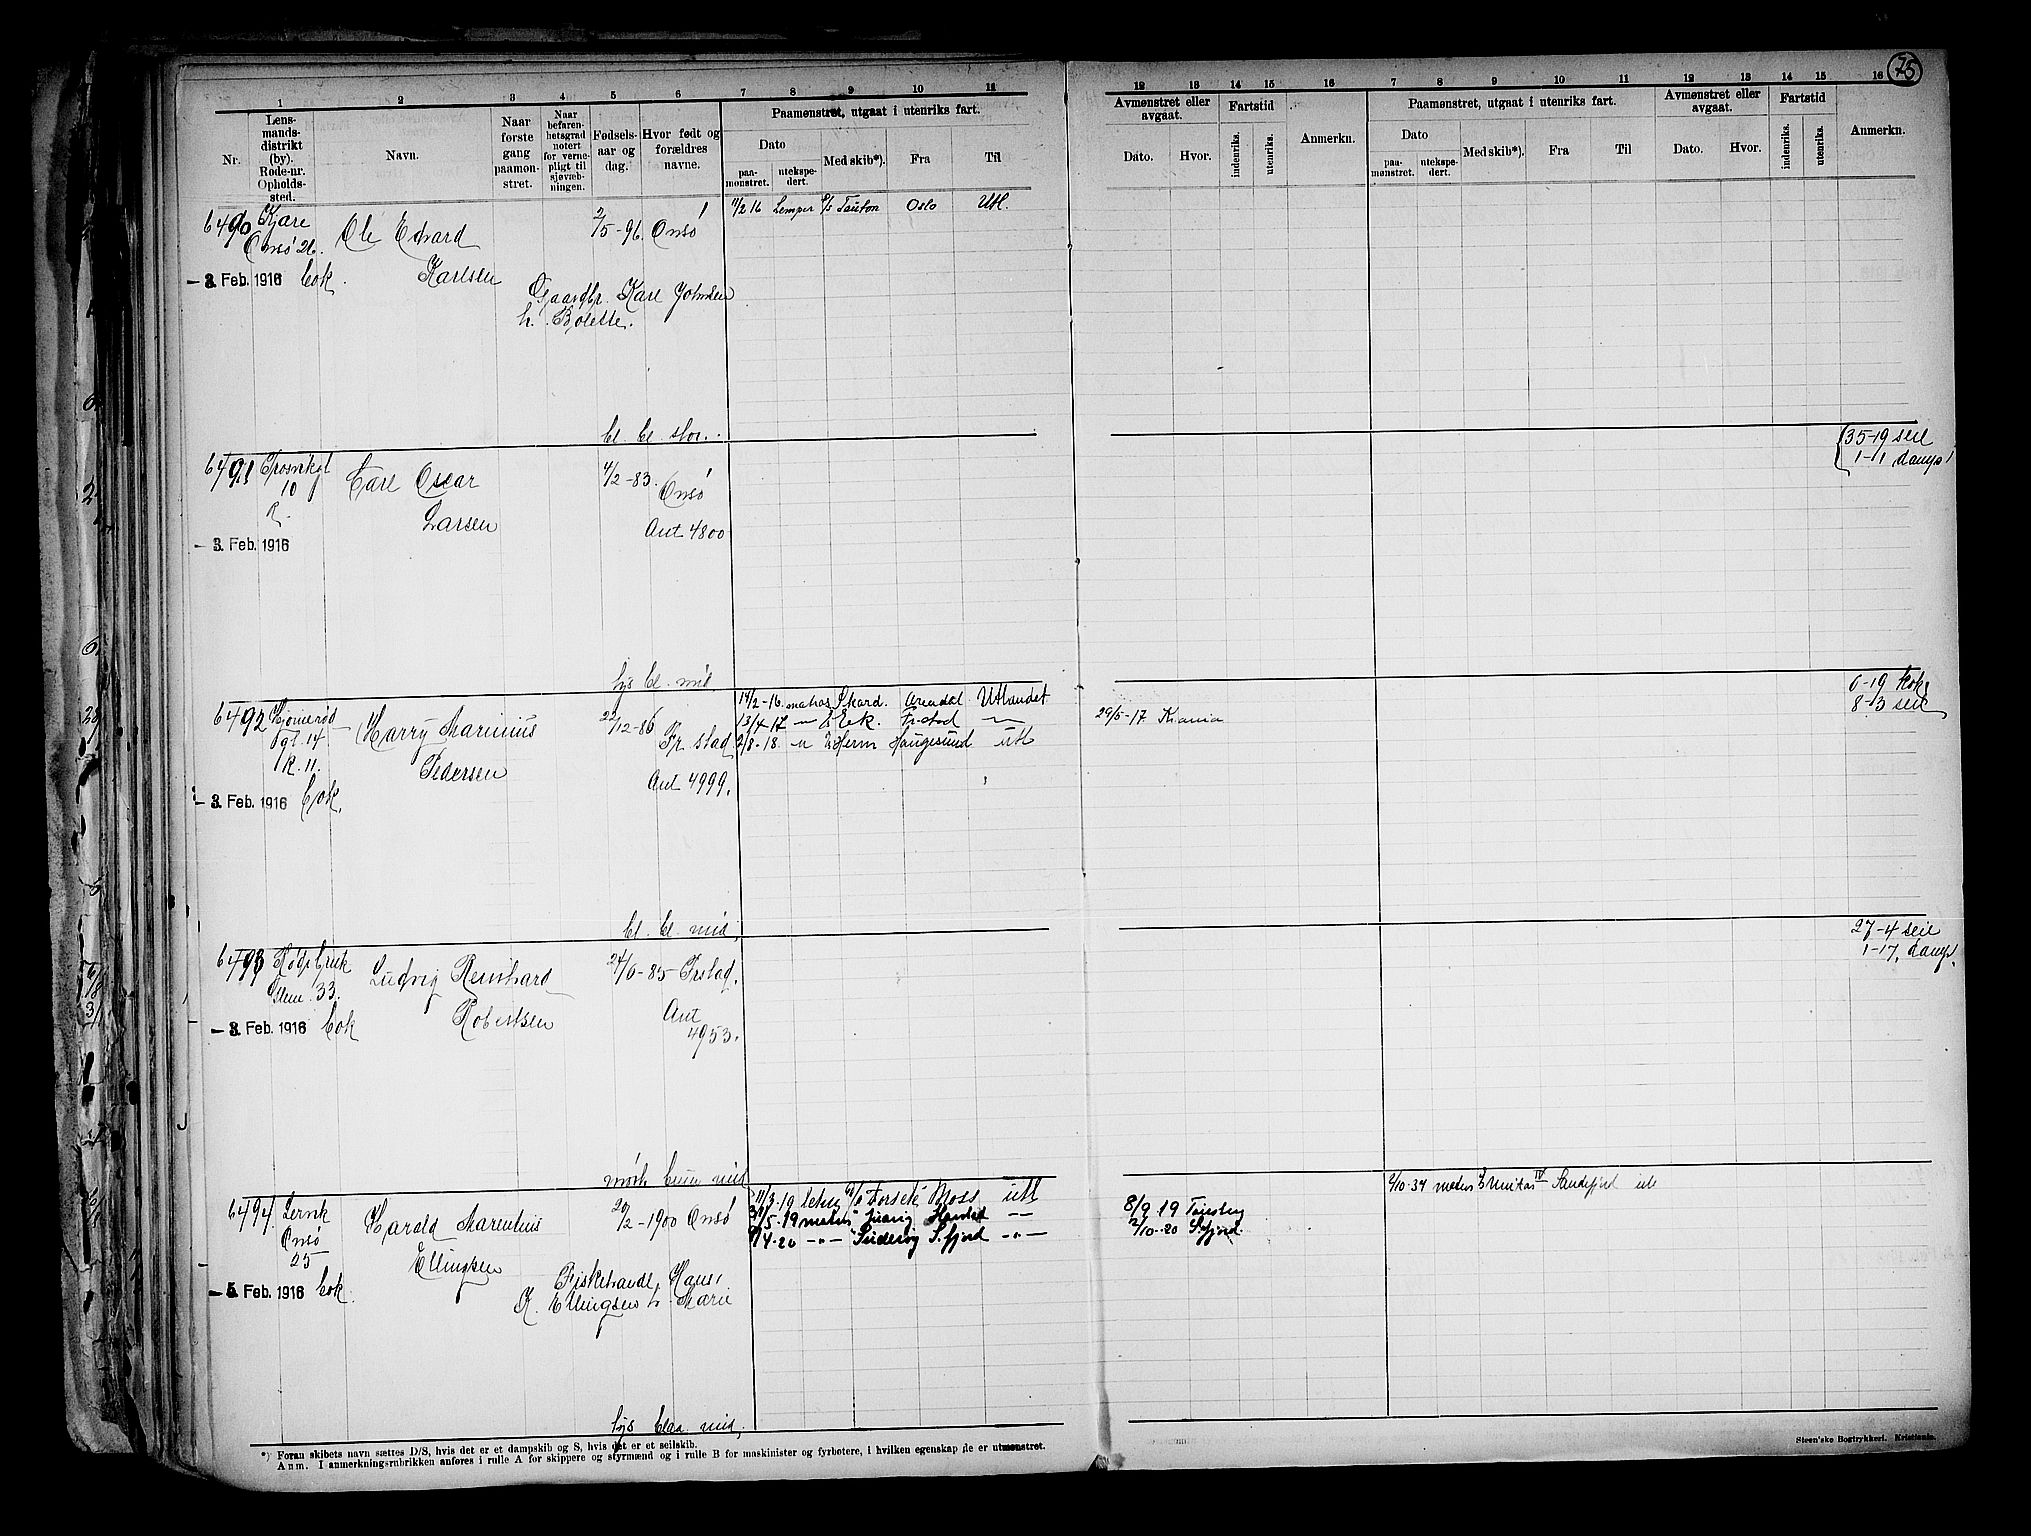 75
1 2 3 4 5 6 7 8 9 10 11
12 13 14 15 16 7 8 9 10 11 12 13 14 15 16
Nr.
Lens-
mands-
distrikt
(by).
Rode-nr.
Opholds-
sted.
Navn.
Naar
første
gang
paamøn-
stret.
Naar
befaren-
hetsgrad
notert
for verne-
pligt til
sjøvæb-
ningen.
Fødsels-
aar og
dag.
Hvor født og
forældres
navne.
Paamønstret, utgaat i utenriks fart.
Dato
paa-
mønstret.
ntekspe-
dert.
Med skib*).
Fra
Til
Avmønstret eller
avgaat.
Dato.
Hvor.
Fartstid
indenriks.
utenriks.
Anmerkn.
Paamønstret, utgaat i utenriks fart.
Dato
paa-
mønstret.
ntekspe-
dert.
Med skib*).
Fra
Til
Avmønstret eller
avgaat.
Dato.
Hvor.
Fartstid
indenriks.
utenriks.
Anmerkn.
6490 Kjære Ole Edvard 2/5-96. Onsö 11/2 16 Lemper Tauton Oslo Utl.
Onsö 26.
- 3. Feb. 1916 Cok. Karlsen
Gaardbr. Karl Johnsen
h. Bolette.
bl. bl. stor.
6491 Trosvikgt Carl Oscar 4/2-83. Onsö
10
R. Larsen Ant 4800
- 3. Feb. 1916
35-19 seil
1-11 damps
lys bl. mid
6492 Harry Marinius 22/12-86 Fr.stad
gt. 14
R. 11. Pedersen Ant 4999.
- 3. Feb. 1916 Cok.
14/2-16. matros Skard. Arendal Utlandet
13/4 17 - Eek. Fr.stad
2/8-18. Herm Haugesund utl
29/5-17 Krania
6-19 kok
8-3 seil
bl. bl. mid,
6493 Ludvig Reinhard 24/6-85 Frstad.
33.
- 3. Feb. 1916 Cok Robertsen Ant
4953.
27-4 seil
1-17, damps.
mørk brun mid
6494. Lervik Harald Marentius 20/2-1900 Onsø
Onsø
25 Ellingsen
- 5. Feb. 1916 Cok. Fiskehandl. Hans
K. Ellingsen h. Marie
11/3-19 Forsete Moss utl
5-19 matros Harstad
4-20 S.fjord
8/9 19 Tønsberg
2/10-20 S.fjord.
2/10-34 matros Unitas IV Sandefjord utl
lys blaa mid,
*) Foran skibets navn sættes D/S, hvis det er et dampskib og S, hvis det er et seilskib.
Anm. I anmerkningsrubrikken anføres i rulle A for skippere og styrmænd og i rulle B for maskinister og fyrbøtere, i hvilken egenskap de er utmønstret.
Steen'ske Bogtrykkeri. Kristiania.